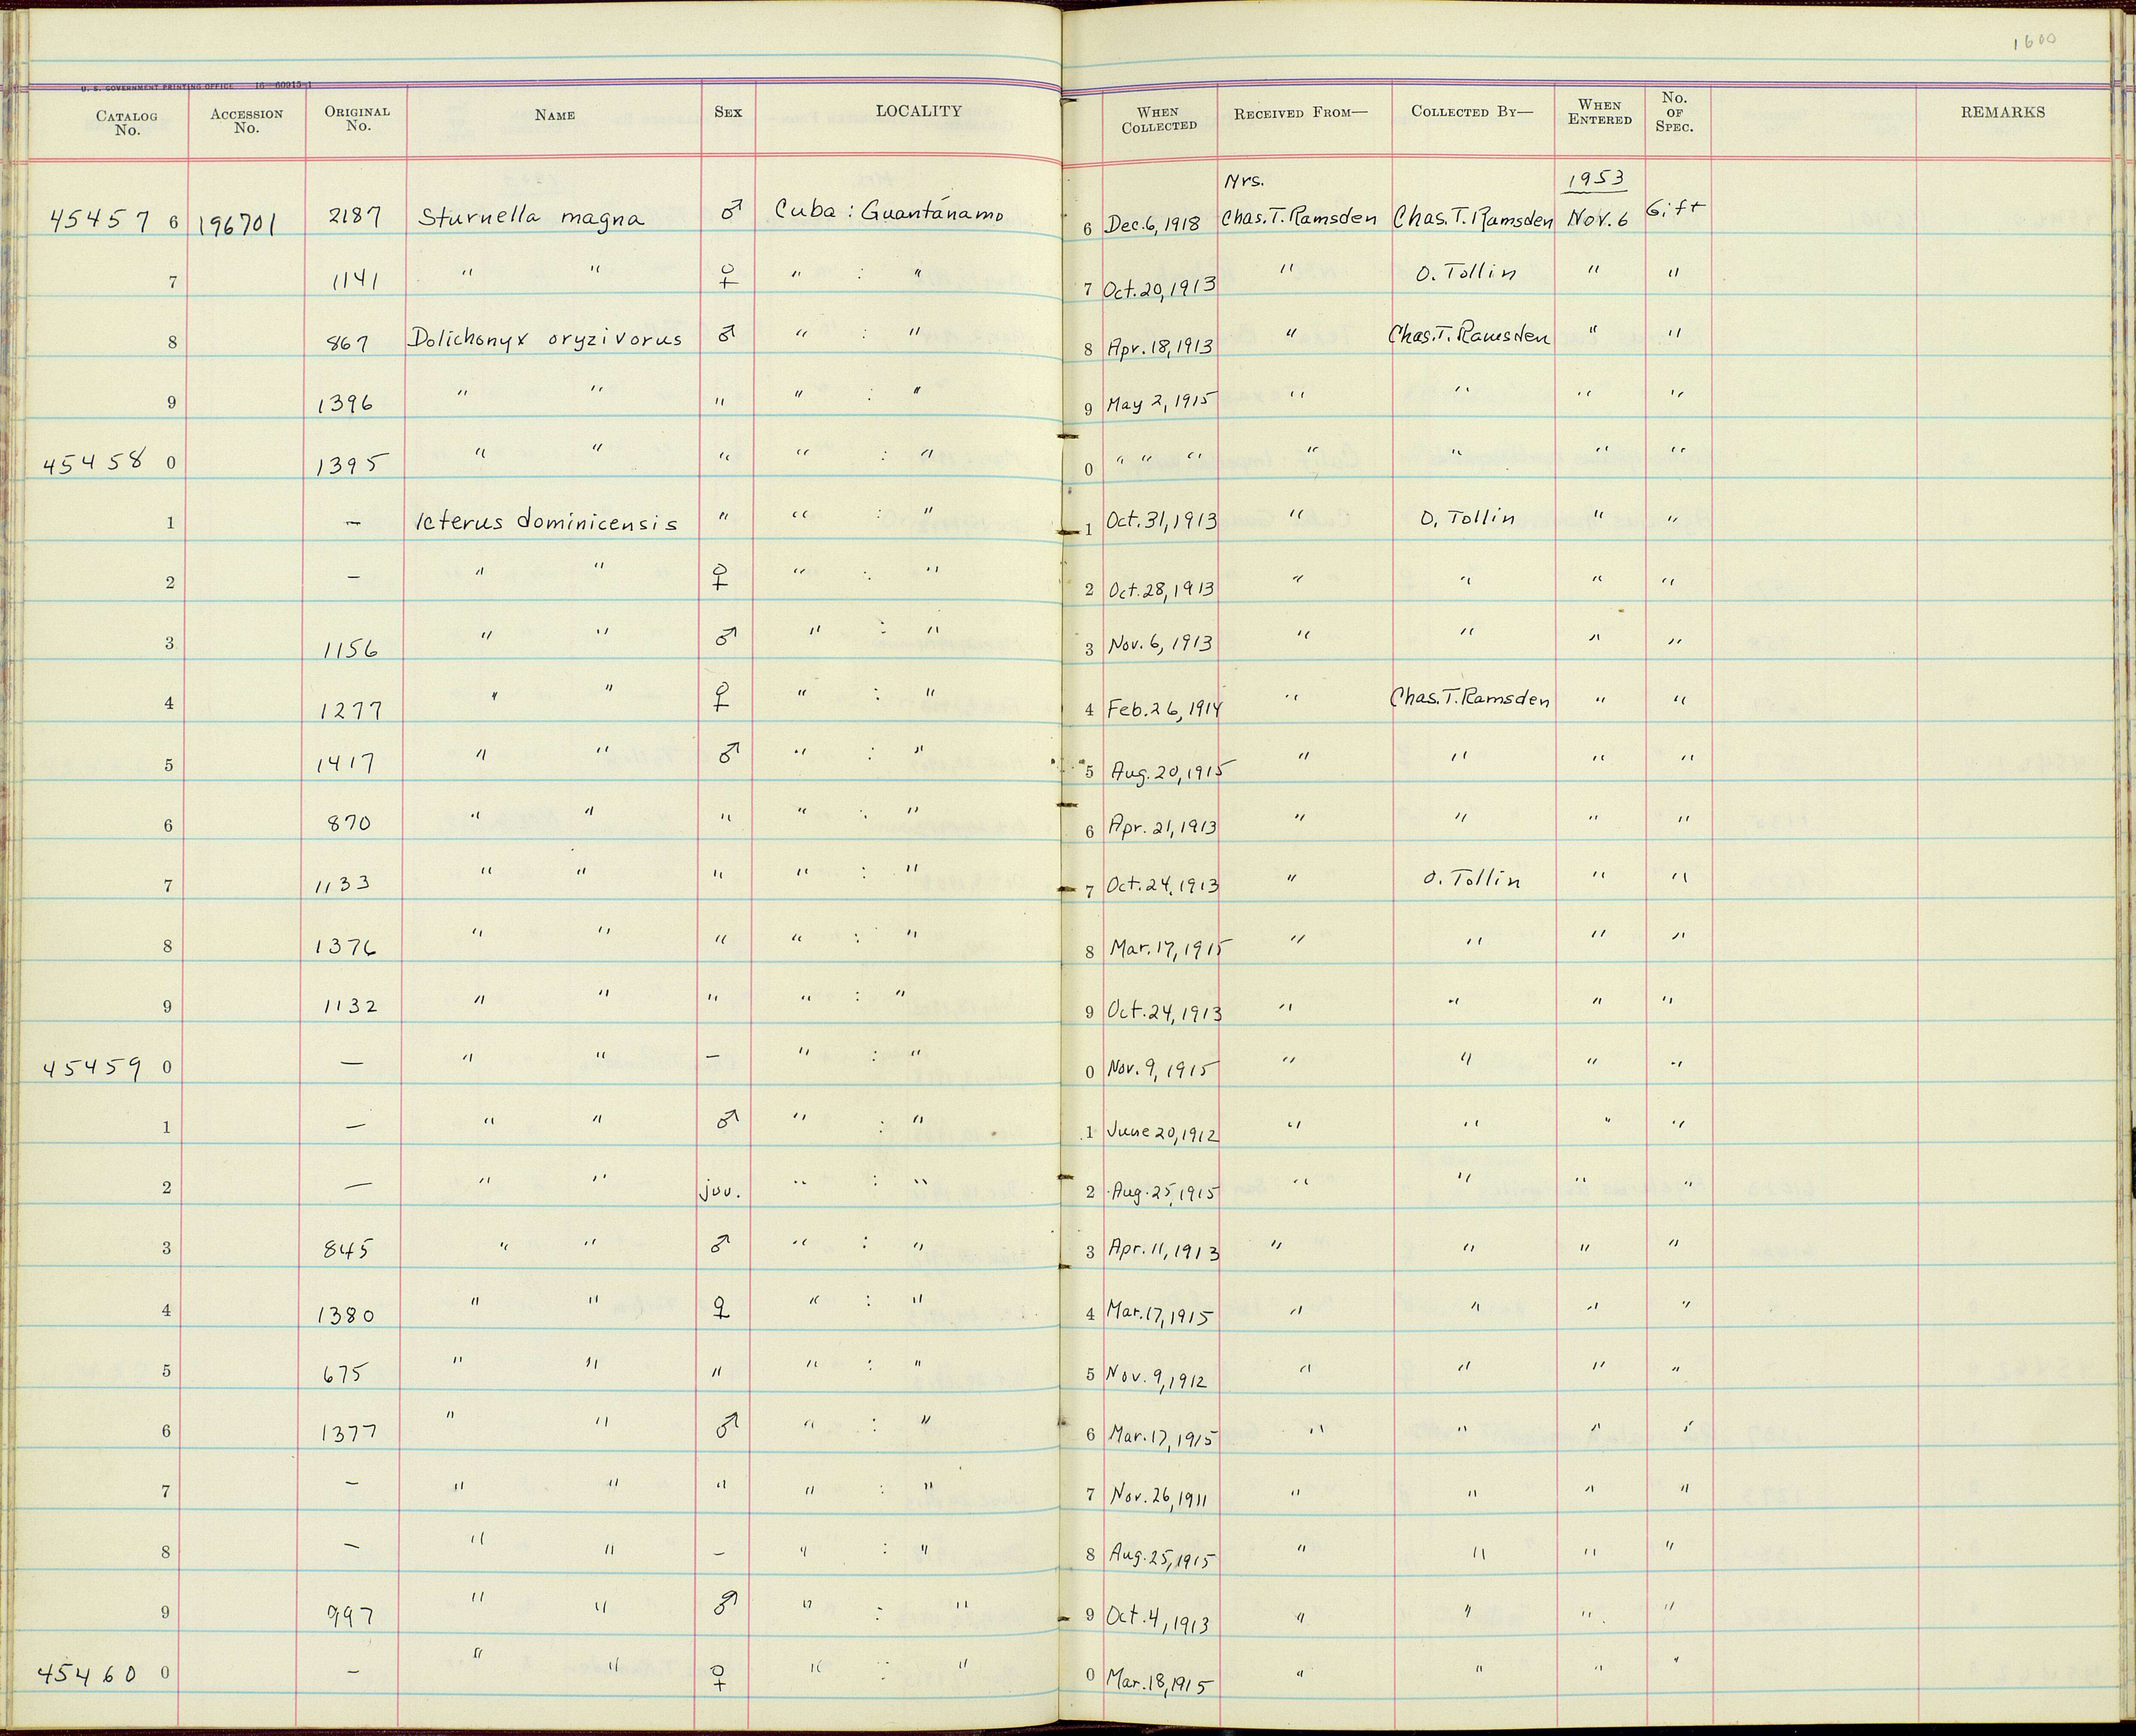 1600
U. S. GOVERNMENT PRINTING OFFICE 16—60915-1
CATALOG No. ACCESSION No. ORIGINAL No. NAME SEX LOCALITY WHEN COLLECTED RECEIVED FROM— COLLECTED BY— WHEN ENTERED No. OF SPEC. REMARKS
Mrs. 1953
45457 6 196701 2187 Sturnella magna ♂ Cuba : Guantánamo 6 Dec. 6, 1918 Chas. T. Ramsden Chas. T. Ramsden Nov. 6 Gift
7 1141 " " ♀ " : " 7 Oct. 20, 1913 " O. Tollin " "
8 867 Dolichonyx oryzivorus ♂ " : " 8 Apr. 18, 1913 " Chas. T. Ramsden " "
9 1396 " " " " : " 9 May 2, 1915 " " " "
45458 0 1395 " " " " : " 0 " " " " " " "
1 — Icterus dominicensis " " : " 1 Oct. 31, 1913 " O. Tollin " "
2 — " " ♀ " : " 2 Oct. 28, 1913 " " " "
3 1156 " " ♂ " : " 3 Nov. 6, 1913 " " " "
4 1277 " " ♀ " : " 4 Feb. 26, 1914 " Chas. T. Ramsden " "
5 1417 " " ♂ " : " 5 Aug. 20, 1915 " " " "
6 870 " " " " : " 6 Apr. 21, 1913 " " " "
7 1133 " " " " : " 7 Oct. 24, 1913 " O. Tollin " "
8 1376 " " " " : " 8 Mar. 17, 1915 " " " "
9 1132 " " " " : " 9 Oct. 24, 1913 " " " "
45459 0 — " " — " : " 0 Nov. 9, 1915 " " " "
1 — " " ♂ " : " 1 June 20, 1912 " " " "
2 — " " juv. " : " 2 Aug. 25, 1915 " " " "
3 845 " " ♂ " : " 3 Apr. 11, 1913 " " " "
4 1380 " " ♀ " : " 4 Mar. 17, 1915 " " " "
5 675 " " " " : " 5 Nov. 9, 1912 " " " "
6 1377 " " ♂ " : " 6 Mar. 17, 1915 " " " "
7 — " " " " : " 7 Nov. 26, 1911 " " " "
8 — " " — " : " 8 Aug. 25, 1915 " " " "
9 997 " " ♂ " : " 9 Oct. 4, 1913 " " " "
45460 0 — " " ♀ " : " 0 Mar. 18, 1915 " " " "